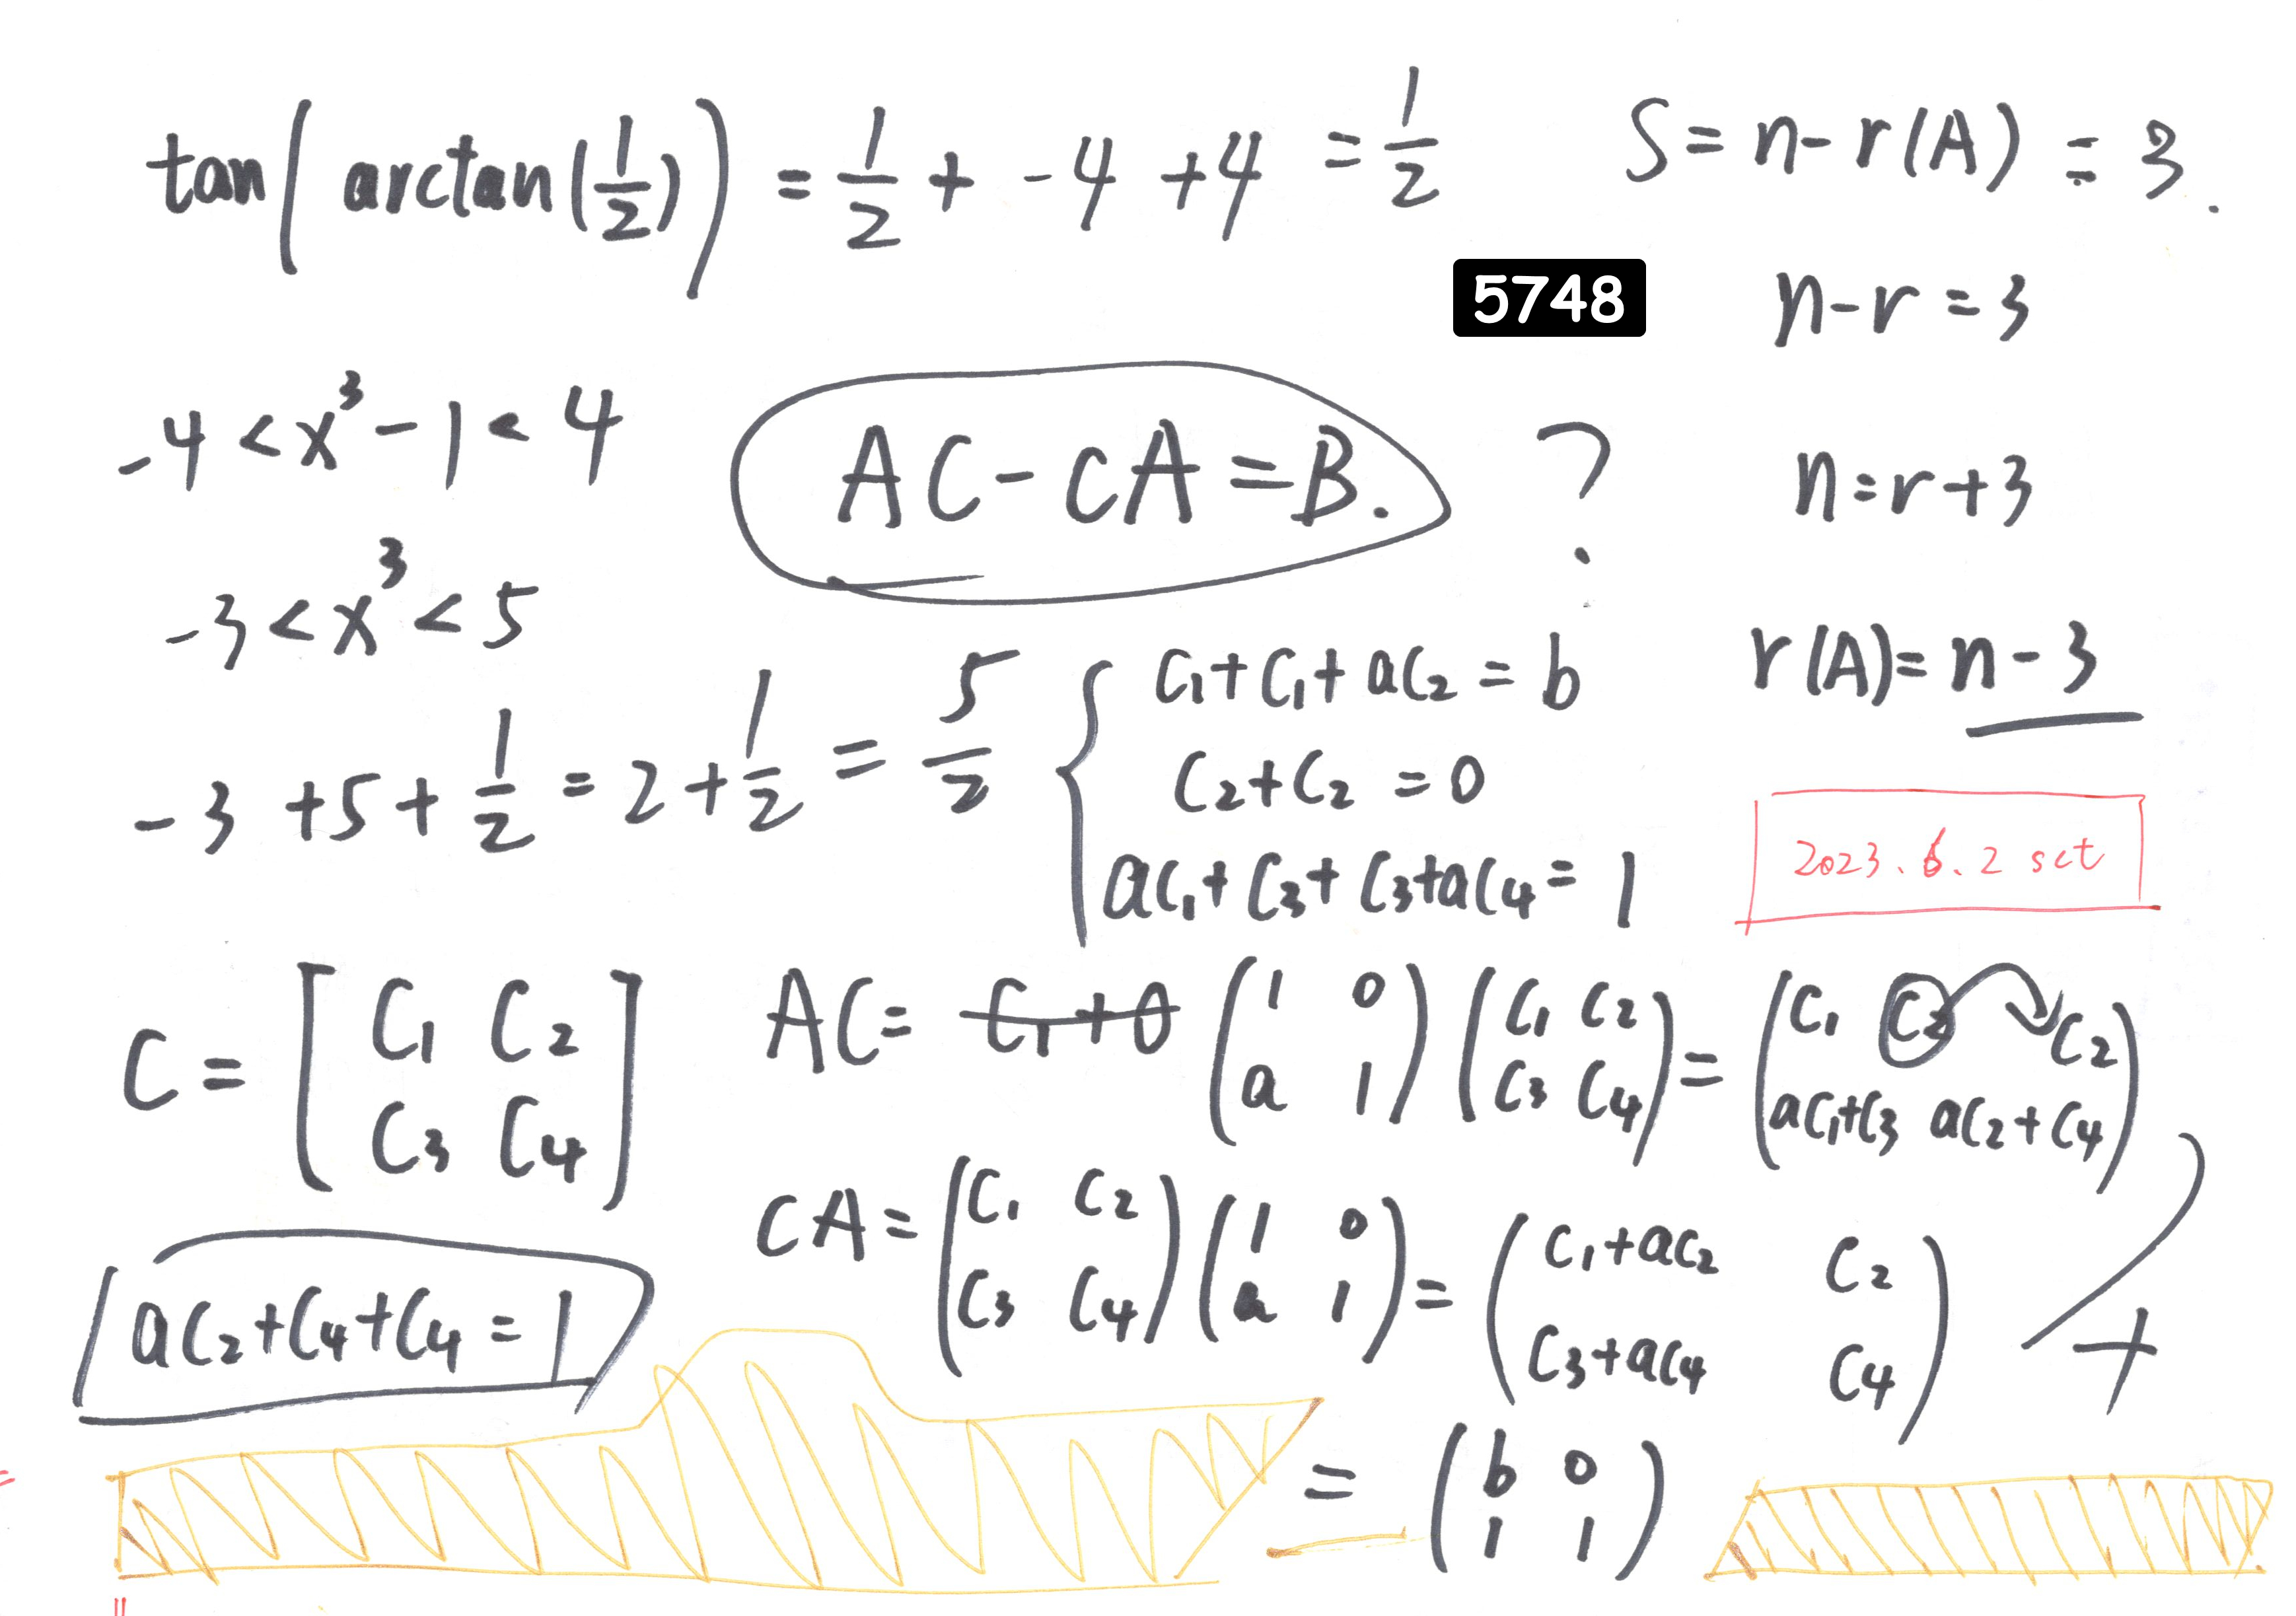 tan(arctan(1/2)) = 1/2 + -4 +4 = 1/2
S = n - r(A) = 3.
5748
n-r = 3
-4 < x³ - 1 < 4
AC - CA = B. ?
n = r + 3
-3 < x³ < 5
r(A) = n - 3
-3 + 5 + 1/2 = 2 + 1/2 = 5/2
{ C₁ + C₁ + aC₂ = b
C₂ + C₂ = 0
aC₁ + C₃ + C₃ + aC₄ = 1
2023.6.2 sct
C = [C₁ C₂
C₃ C₄]
AC = C₁+0 (1 0
a 1) (C₁ C₂
C₃ C₄) = (C₁ C₂ C₂
aC₁+C₃ aC₂+C₄)
CA = (C₁ C₂
C₃ C₄) (1 0
a 1) = (C₁+aC₂ C₂
C₃+aC₄ C₄) +
aC₂+C₄+C₄ = 1
= (b 0
1 1)